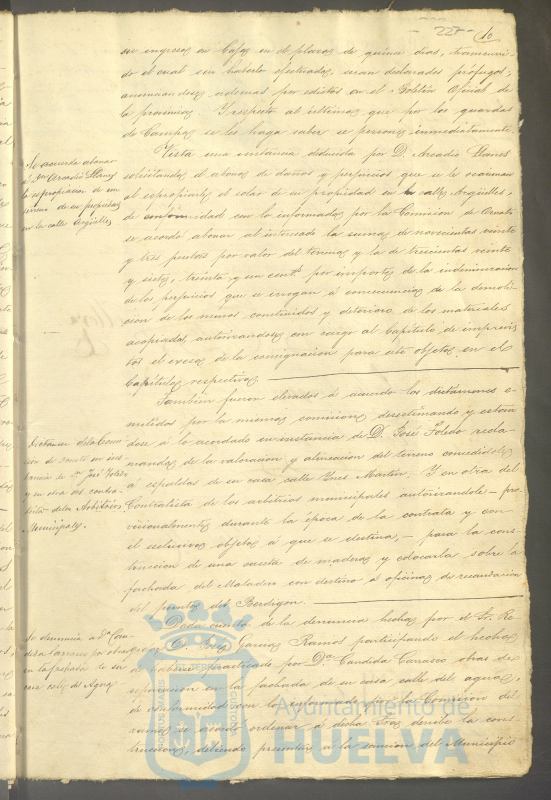 227 10
su ingreso en Caja en el plazo de quince dias, transcurri
do el cual sin haberlo efectuado, sean declarados prófugos,
anunciandose ademas por edictos en el Boletin Oficial de
la provincia. Y respecto al último que por los guardas
de Campo se les haga saber se persone inmediatamente.
Se acuerda abonar
á Dn Arcadio Llanes
la espropiacion de un
terreno de su propiedad
en la calle Argüelles
Vista una instancia deducida por D. Arcadio Llanes
solicitando el abono de daños y perjuicios que se le ocasionan
al espropiarle el solar de su propiedad en la calle Argüelles,
de conformidad con lo informado por la Comision de Ornato
se acordó abonar al interesado la suma de novecientas veinte
y tres pesetas por valor del terreno y la de trescientas veinte
y siete, treinta y un cents. por importe de la indemnizacion
de los perjuicios que se irrogan á consecuencia de la demoli
cion de los muros construidos y deterioro de los materiales
acopiados, autorizandose con cargo al Capítulo de imprevis
tos el exceso de la consignacion para este objeto en el
Capítulo respectivo
Dictamen de la Comi
sion de ornato en ins
tancia de Dn José Toledo
y en otra del contra
tista de los Arbitrios
Municipales.
Tambien fueron elevados á acuerdo los dictámenes e
mitidos por la misma comision, desestimando y estan
dose á lo acordado en instancia de D. José Toledo recla
mando de la valoracion y alineacion del terreno concedidole
á espaldas de su casa calle Ynes Martin. Y en otra del
Contratista de los arbitrios municipales autorizandole pro
visionalmente durante la época de la contrata y con
el esclusivo objeto á que se destina, para la cons
truccion de una caseta de madera y colocarla sobre la
fachada del Matadero con destino á oficina de recaudacion
del punto del Berdigon.
Se denuncia a Da Can
dida Carrasco por obras
en la fachada de su
casa calle del Agua
Dada cuenta de la denuncia hecha por el Sr. Re
gidor D. José Garcia Ramos participando el hecho
de haberse practicado por Da Candida Carrasco obras de
reparacion en la fachada de su casa calle del agua,
de conformidad con lo informado de la Comision del
ramo se acordó ordenar á dicha Sra derribe la cons
truccion, debiendo presentar á la sancion del Municipio
PORTUS MARIS
ET TERRÆ
CUSTODIA
Ayuntamiento de
HUELVA